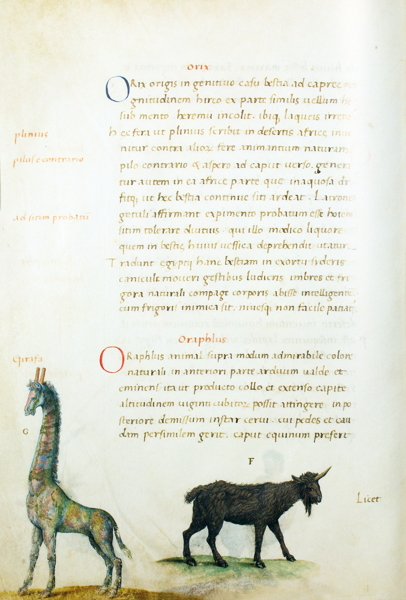 ORIX
ORIX origis in genitivo casu bestia ad capree
gnitudinem hirco ex parte similis vellum
sub mento. heremu incolit. ibiq. laqueis
plinius
hec fera ut plinius scribit in desertis africe
nitur contra alior fere animantium naturam
pilus e contrario
pilo contrario & aspero ad caput verso. generi
tur autem in ea africe parte que inaquosa
ut hec bestia continue siti ardeat. Latrone
ad sitim probatii
getuli affirmant expimento probatum esse
sitim tolerare diutius. qui illo modico liquore
quem in bestie huius vessica deprehendit utatur
Tradunt egyptij hanc bestiam in exortu syderis
canicule moveri gestibus ludicris imbres et fri
gora naturali compage corporis abisse intelligente
cum frigoris inimica sit. nivesq non facile patiat
Oraphlus
Girafa
ORAPHLUS animal supra modum admirabile colore
naturali in anteriori parte arduum valde et
eminens ita ut producto collo et extenso capite
altitudinem viginti cubitor possit attingere. in po
steriore demissum instar cervi. cui pedes et cau
dam persimilem gerit. caput equinum prefert
G
F
Licet